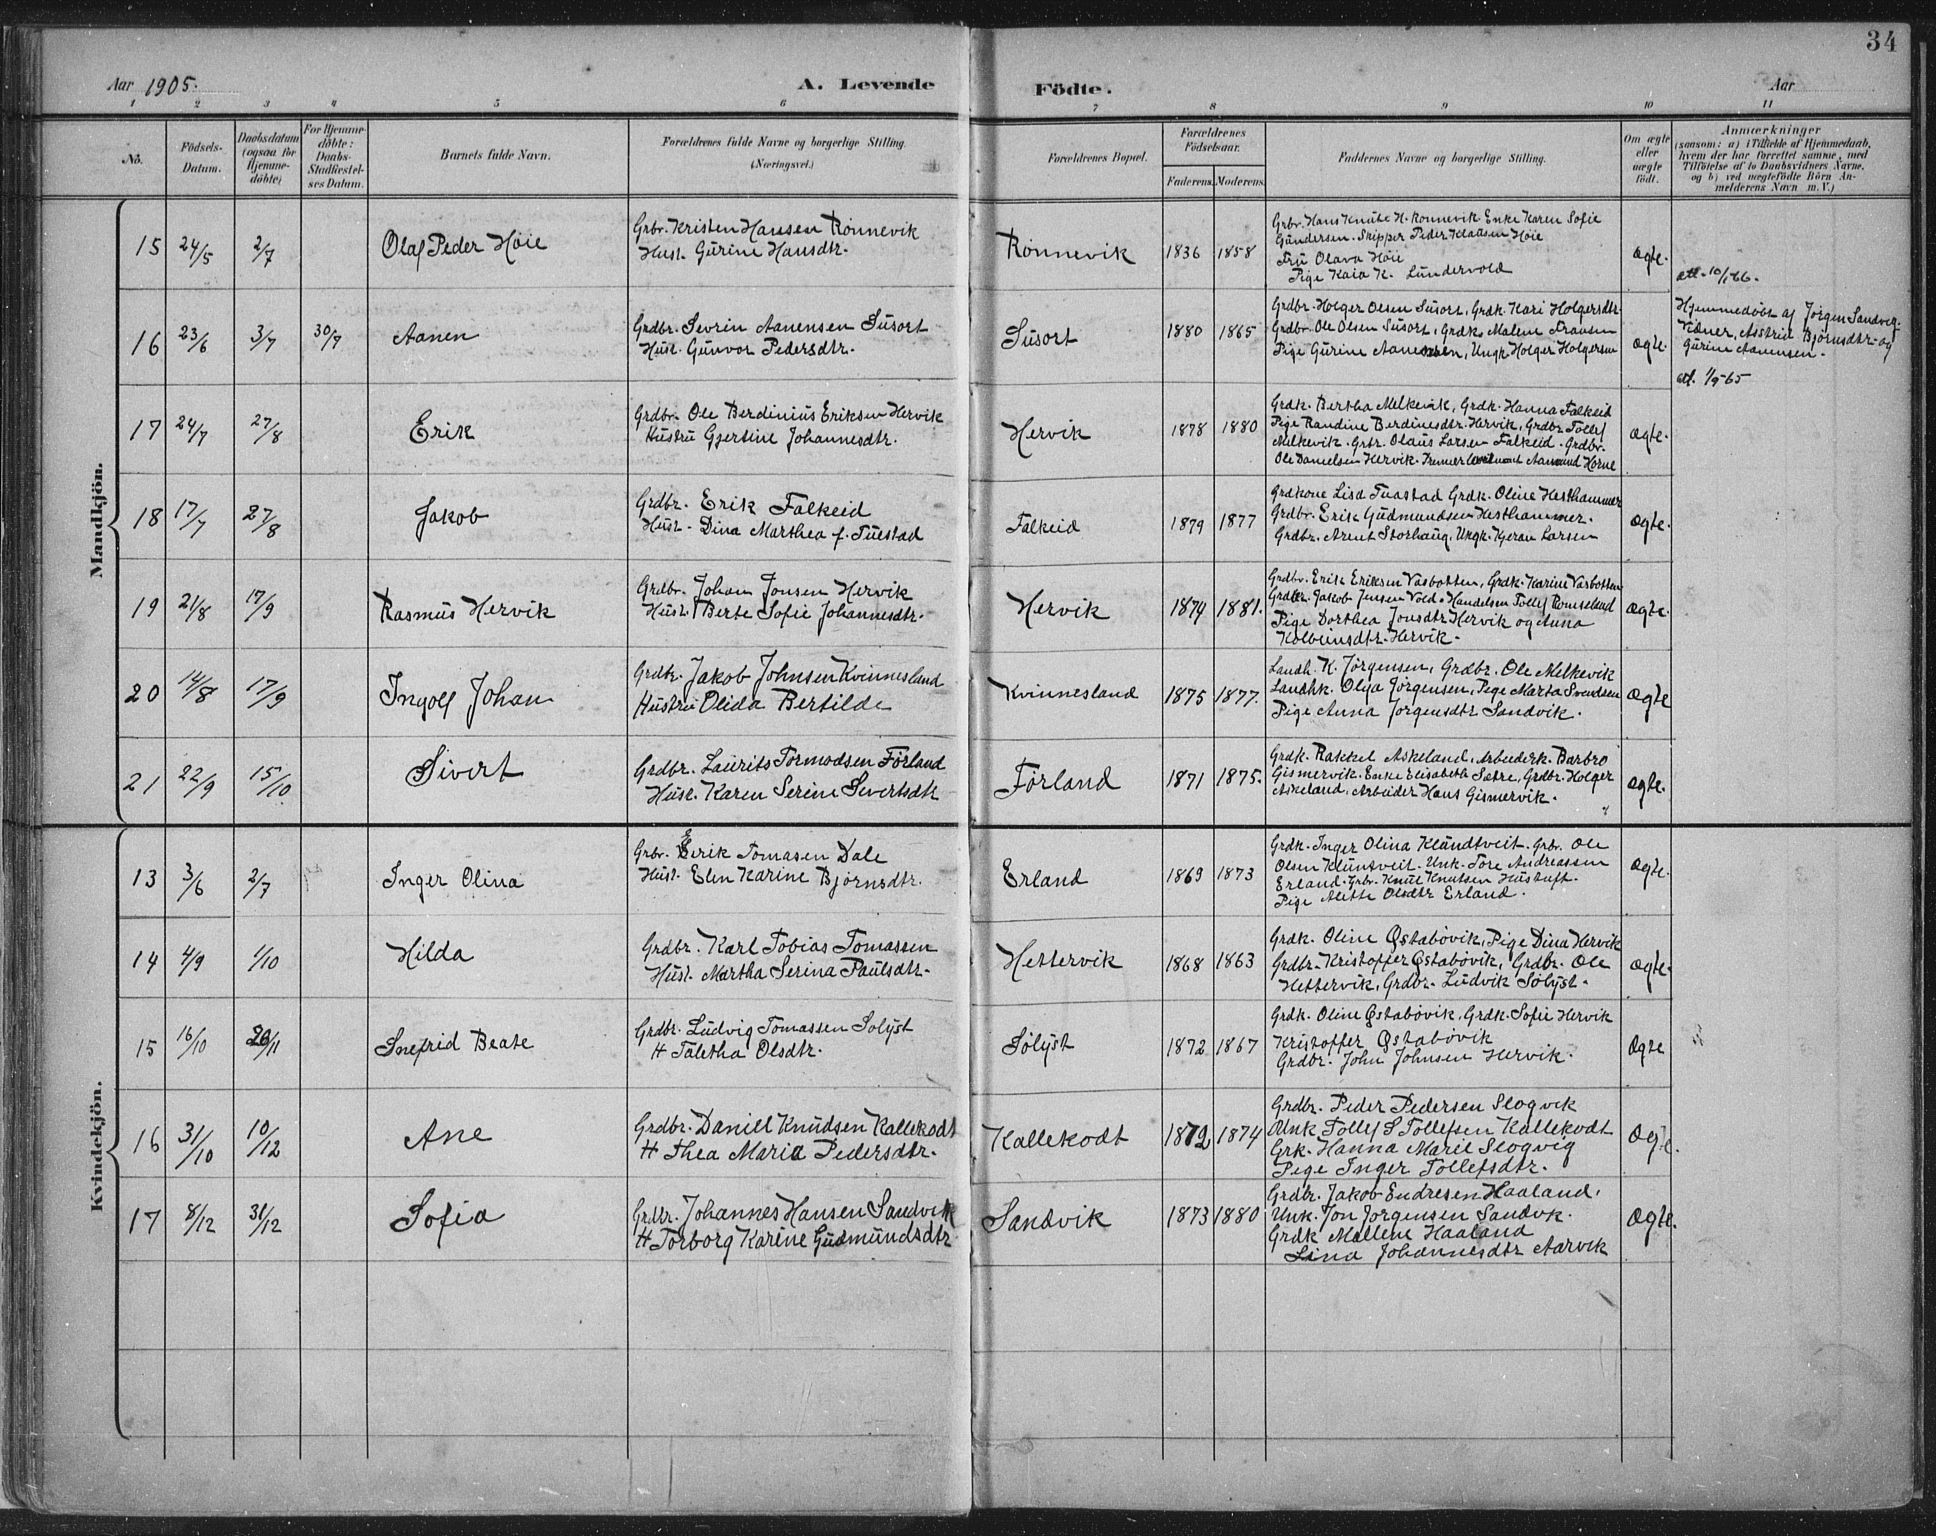 34
Aar 1905. A. Levende Födte. Aar
1 2 3 4 5 6 7 8 9 10 11
No. Födsels-Datum. Daabsdatum (ogsaa for Hjemme-döbte) For Hjemme-döbte: Daabs-Stadfæstel-ses Datum. Barnets fulde Navn. Forældrenes fulde Navne og borgerlige Stilling. (Næringsvei.) Forældrenes Bopæl. Forældrenes Födselsaar. Faderens. Moderens. Faddernes Navne og borgerlige Stilling. Om ægte eller uægte födt. Anmærkninger (saasom: a) i Tilfælde af Hjemmedaab, hvem der har forrettet samme, med Tilföielse af to Daabsvidners Navne, og b) ved uægtefödte Börn An-melderens Navn m. V.)
Mandkjön.
15 24/5 2/7 Olaf Peder Høie
Grbr. Kristen Hansen Rønnevik
Hust. Gurine Hansdtr.
Rønnevik 1836 1858
Grbr. Hans Knute H. Rønnevik. Enke Karen Sofie
Gundersen. Skipper Peder Klausen Høie
Fru Olava Høie
Pige Kaia K. Lundervold
ægte.
att. 10/1 66.
16 23/6 3/7 30/7 Aanen
Grdbr. Sevrin Aanensen Susort
Hust. Gunvor Pedersdtr.
Susort 1880 1865
Grdbr. Holger Olsen Susort, Grdk. Kari Holgersdtr.
Grdbr. Ole Olsen Susort, Grdk. Malene Fransen
Pige Gurine Aanensen, Ungk. Holger Holgersen
ægte.
Hjemmedøbt af Jørgen Sandvig.
Vidner, Asstrid Bjørnsdtr. og
Gurine Aanensen.
att. 1/9-65
17 24/7 27/8 Erik
Grdbr. Ole Berdinius Eriksen Hervik
Hustru Gjertine Johannesdtr.
Hervik 1878 1880
Grdk. Bertha Melkevik, Grdk. Hanna Falkeid
Pige Randine Berdinesdtr. Hervik, Grdbr. Tollef
Melkevik. Grbr. Olaus Larsen Falkeid. Grdbr.
Ole Danielsen Hervik. Aamund Horne
ægte.
18 17/7 27/8 Jakob
Grdbr. Erik Falkeid
Hust. Dina Marthea f. Tuestad
Falkeid 1879 1877
Grdkone Lisa Tuastad Grdk. Oline Hesthammer
Grdbr. Erik Gudmundsen Hesthammer.
Grdbr. Arent Storhaug, Ungk. Kjeran Larsen
ægte.
19 21/8 17/9 Rasmus Hervik
Grdbr. Johan Jonsen Hervik
Hust. Berte Sofie Johannesdtr.
Hervik 1874 1881.
Grdbr. Erik Eriksen Vasbotten, Grdk. Karine Vasbotten
Grdbr. Jakob Jensen Vold. Handelsm Tollef Romseland
Pige Dorthea Jonsdtr Hervik og Anna
Kolbeinsdtr. Hervik.
ægte.
20 14/8 17/9 Ingolf Johan
Grdbr. Jakob Johnsen Kvinnesland
Hustru Olida Bertilde
Kvinnesland 1875 1877.
Landh. K. Jørgensen, Grdbr. Ole Melkevik
Landhk. Olga Jørgensen, Pige Marta Svendsen
Pige Anna Jørgensdtr Sandvik.
ægte
21 22/9 15/10. Sivert
Grdbr. Laurits Tormodsen Førland
Hust. Karen Serine Sivertsdtr
Førland 1871 1875.
Grdk. Rakkel Askeland, Arbeiderk. Barbro
Gismervik. Enke Elisabeth Sætre, Grdbr. Holger
Askeland, Arbeider Hans Gismervik.
ægte.
Kvindekjön.
13 3/6 2/7 Inger Olina
Grbr. Eerik Tomasen Dale
Hust. Elen Karine Bjørnsdtr.
Erland 1869 1873
Grdk. Inger Olina Klundtveit. Grb. Ole
Olsen Klundtveit. Unk. Tore Andreassen
Erland. Grbr. Knut Knutsen Hustoft.
Pige Alette Olsdtr Erland.
ægte.
14 4/9 1/10 Hilda
Grdbr. Karl Tobias Tomassen
Hust. Martha Serina Paulsdtr.
Hettervik 1868 1863
Grdk. Oline Østabøvik, Pige Dina Hervik
Grdbr. Kristoffer Østabøvik, Grdbr. Ole
Hettervik, Grdbr. Ludvik Sølyst.
ægte.
15 16/10 26/11 Snefrid Beate
Grdbr. Ludvig Tomassen Solyst
H Taletha Olsdtr.
Sølyst 1872 1867
Grdk. Oline Østabøvik, Grdk. Sofie Hervik
Kristoffer Østabøvik
Grdbr. John Johnsen Hervik.
Ægte
16 31/10 10/12 Ane
Grdbr. Daniel Knudsen Kallekodt
H Thea Maria Pedersdtr.
Kallekodt 1872 1874
Grdbr. Peder Pedersen Slogvik
Unk Tollef S Tollefsen Kallekodt
Grk. Hanna Marie Slogvig
Pige Inger Tollefsdtr.
Ægte.
17 8/12 31/12 Sofia
Grdbr. Johannes Hansen Sandvik
H Torborg Karine Gudmundsdtr
Sandvik 1873 1880
Grdbr. Jakob Endresen Haaland.
Unk. Jon Jørgensen Sandvk.
Grdk Mallene Haaland
Lina Johannesdtr Aarvik
Ægte.